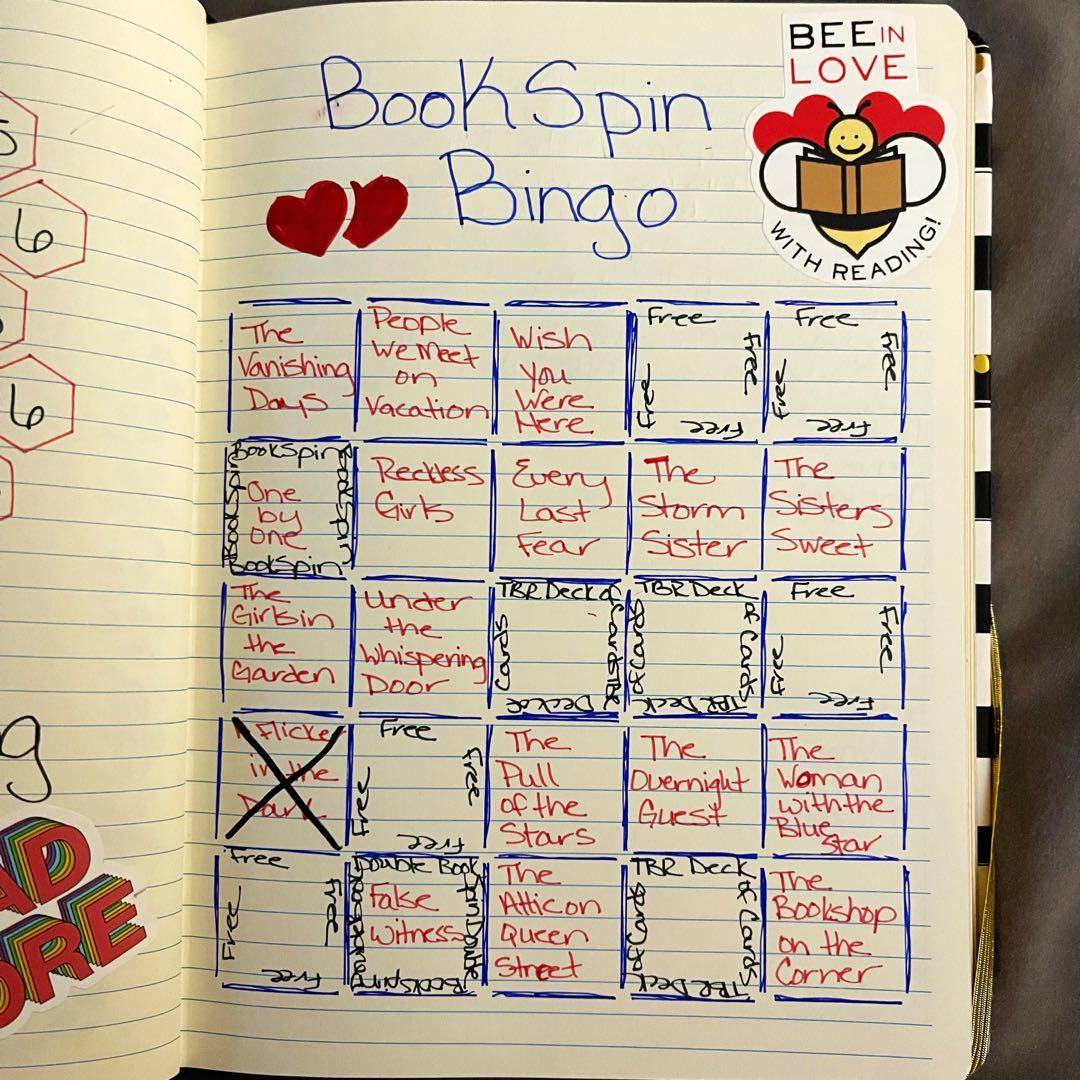 BookSpin
Bingo
BEE IN
LOVE
WITH READING!
The
Vanishing
Days
People
We Meet
on
Vacation
Wish
You
Were
Here
Free
Free
Free
Free
Free
Free
Free
Free
BookSpin
BookSpin
BookSpin
BookSpin
One
by
one
Reckless
Girls
Every
Last
Fear
The
Storm
Sister
The
Sisters
Sweet
The
Girls in
the
Garden
under
the
Whispering
Door
TBR Deck of
Cards TBR
Deck of
Cards
TBR Deck
of Cards
TBR Deck
of Cards
Free
Free
Free
Free
Flicker
in the
Dark
Free
Free
Free
Free
The
Pull
of the
Stars
The
Overnight
Guest
The
Woman
with the
Blue
Star
Free
Free
Free
Free
Double Book
Spin Double
BookSpin
Double Book
False
Witness
The
Attic on
Queen
Street
TBR Deck
of Cards
TBR Deck
of Cards
The
Bookshop
on the
Corner
6
6
g
AD
ORE